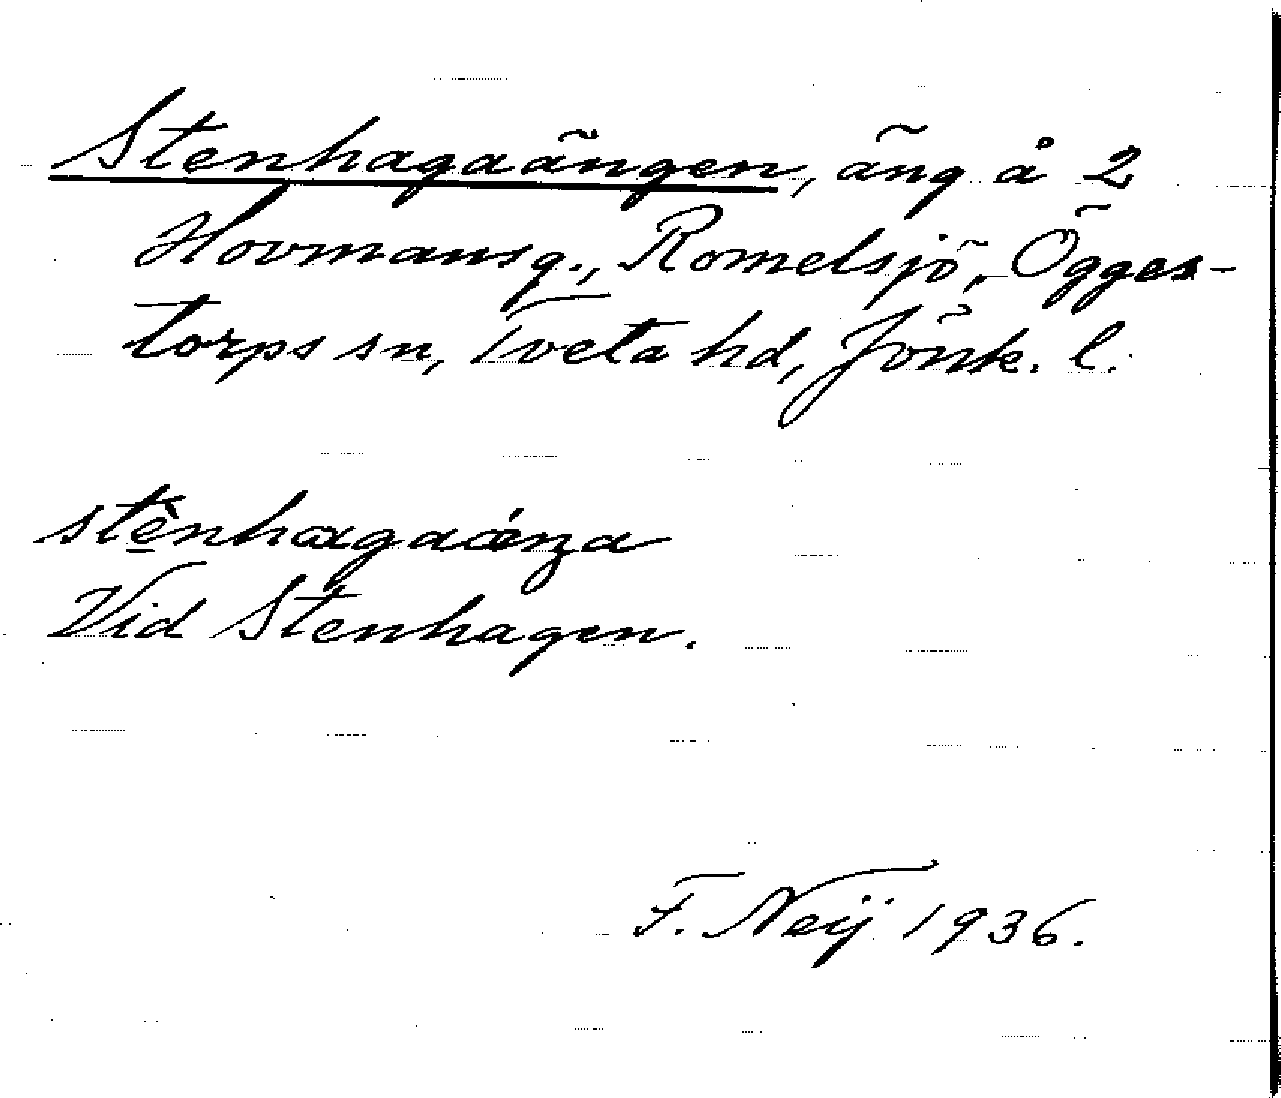 Stenhagaängen, äng å 2
Hovmansg., Romelsjö, Ögges-
torps sn, Tveta hd, Jönk. l.
stènhagaǽnȝa
Vid Stenhagen.
F. Neij 1936.